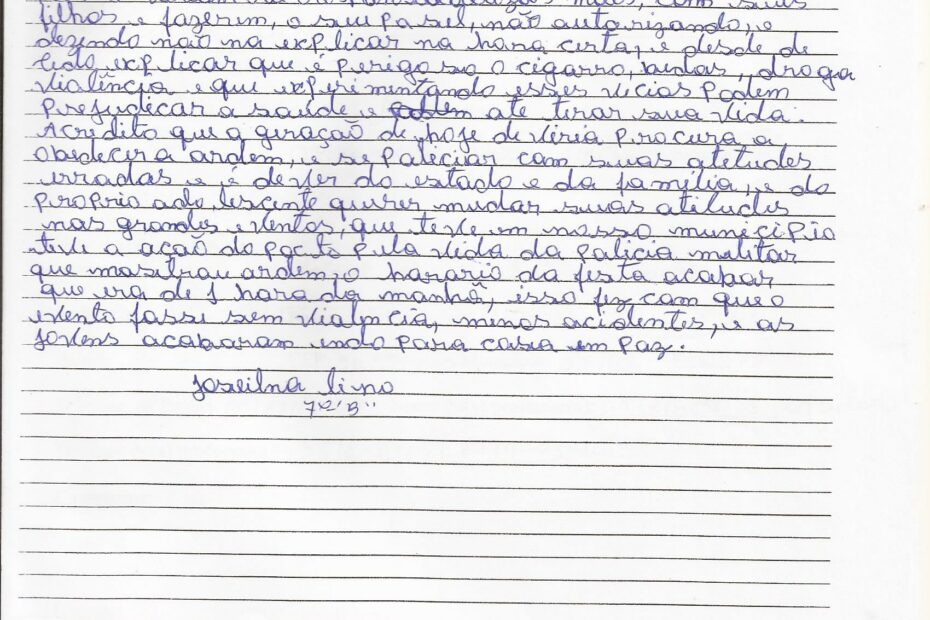 mais, com seus
filhos e fazerem, o seu papel, não autorizando, e
dezendo não na explicar na hora certa, e desde de
cedo explicar que é perigoso o cigarro, bedas, droga
violência e que experimentando esses vicios podem
prejudicar a saúde e até tirar sua vida.
Acredito que a geração de hoje deviria procura a
obedecer a ordem, e se policiar com suas atetudes
erradas e é dever do estado e da família, e do
proprio adolescente querer mudar suas atitudes
nas grandes eventos, que teve em nosso municipio
teve a ação do pacto pela vida da policia militar
que mostrau ordem, o horario da festa acabar
que era de 1 hora da manhã, isso fez com que o
evento fosse sem violência, menos acidentes, e os
jovens acabaram indo para casa em paz.
Joseilna lino
7ª "B"